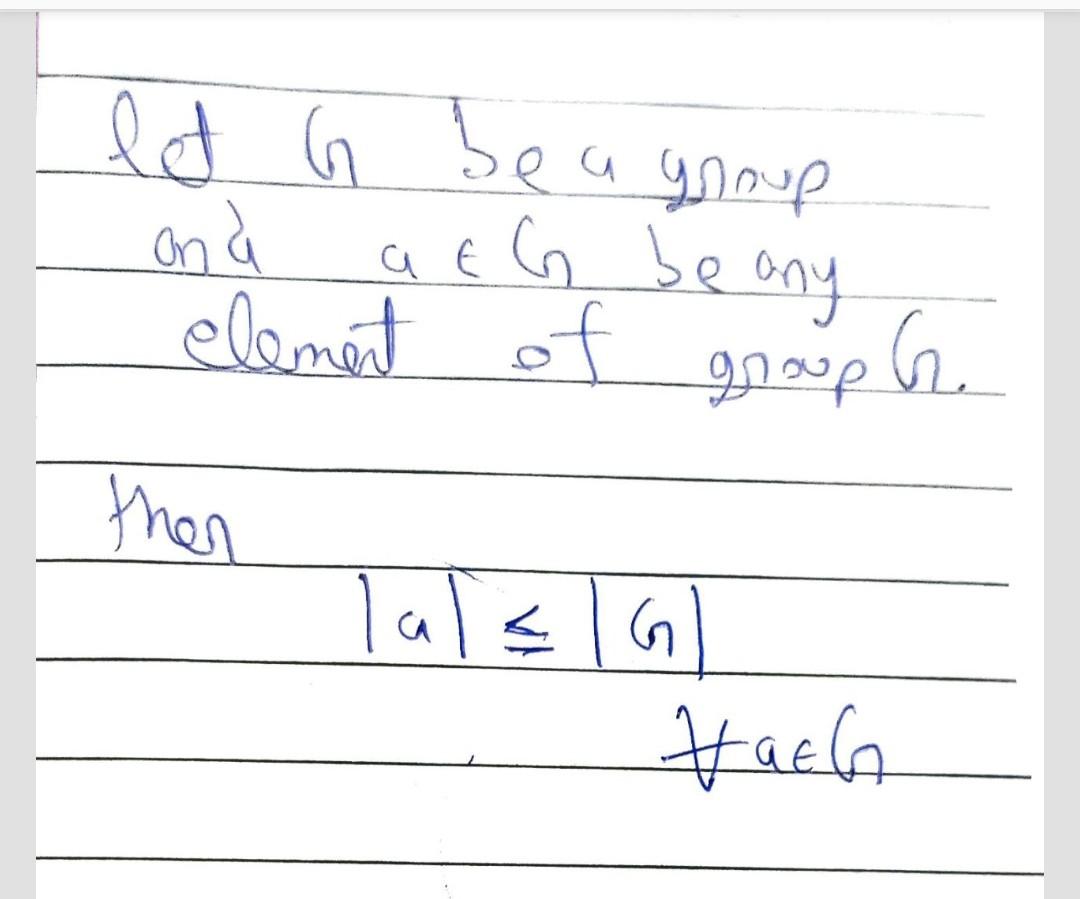 let G be a group
and a ∈ G be any
element of group G.
then
|a| ≤ |G|
∀ a ∈ G